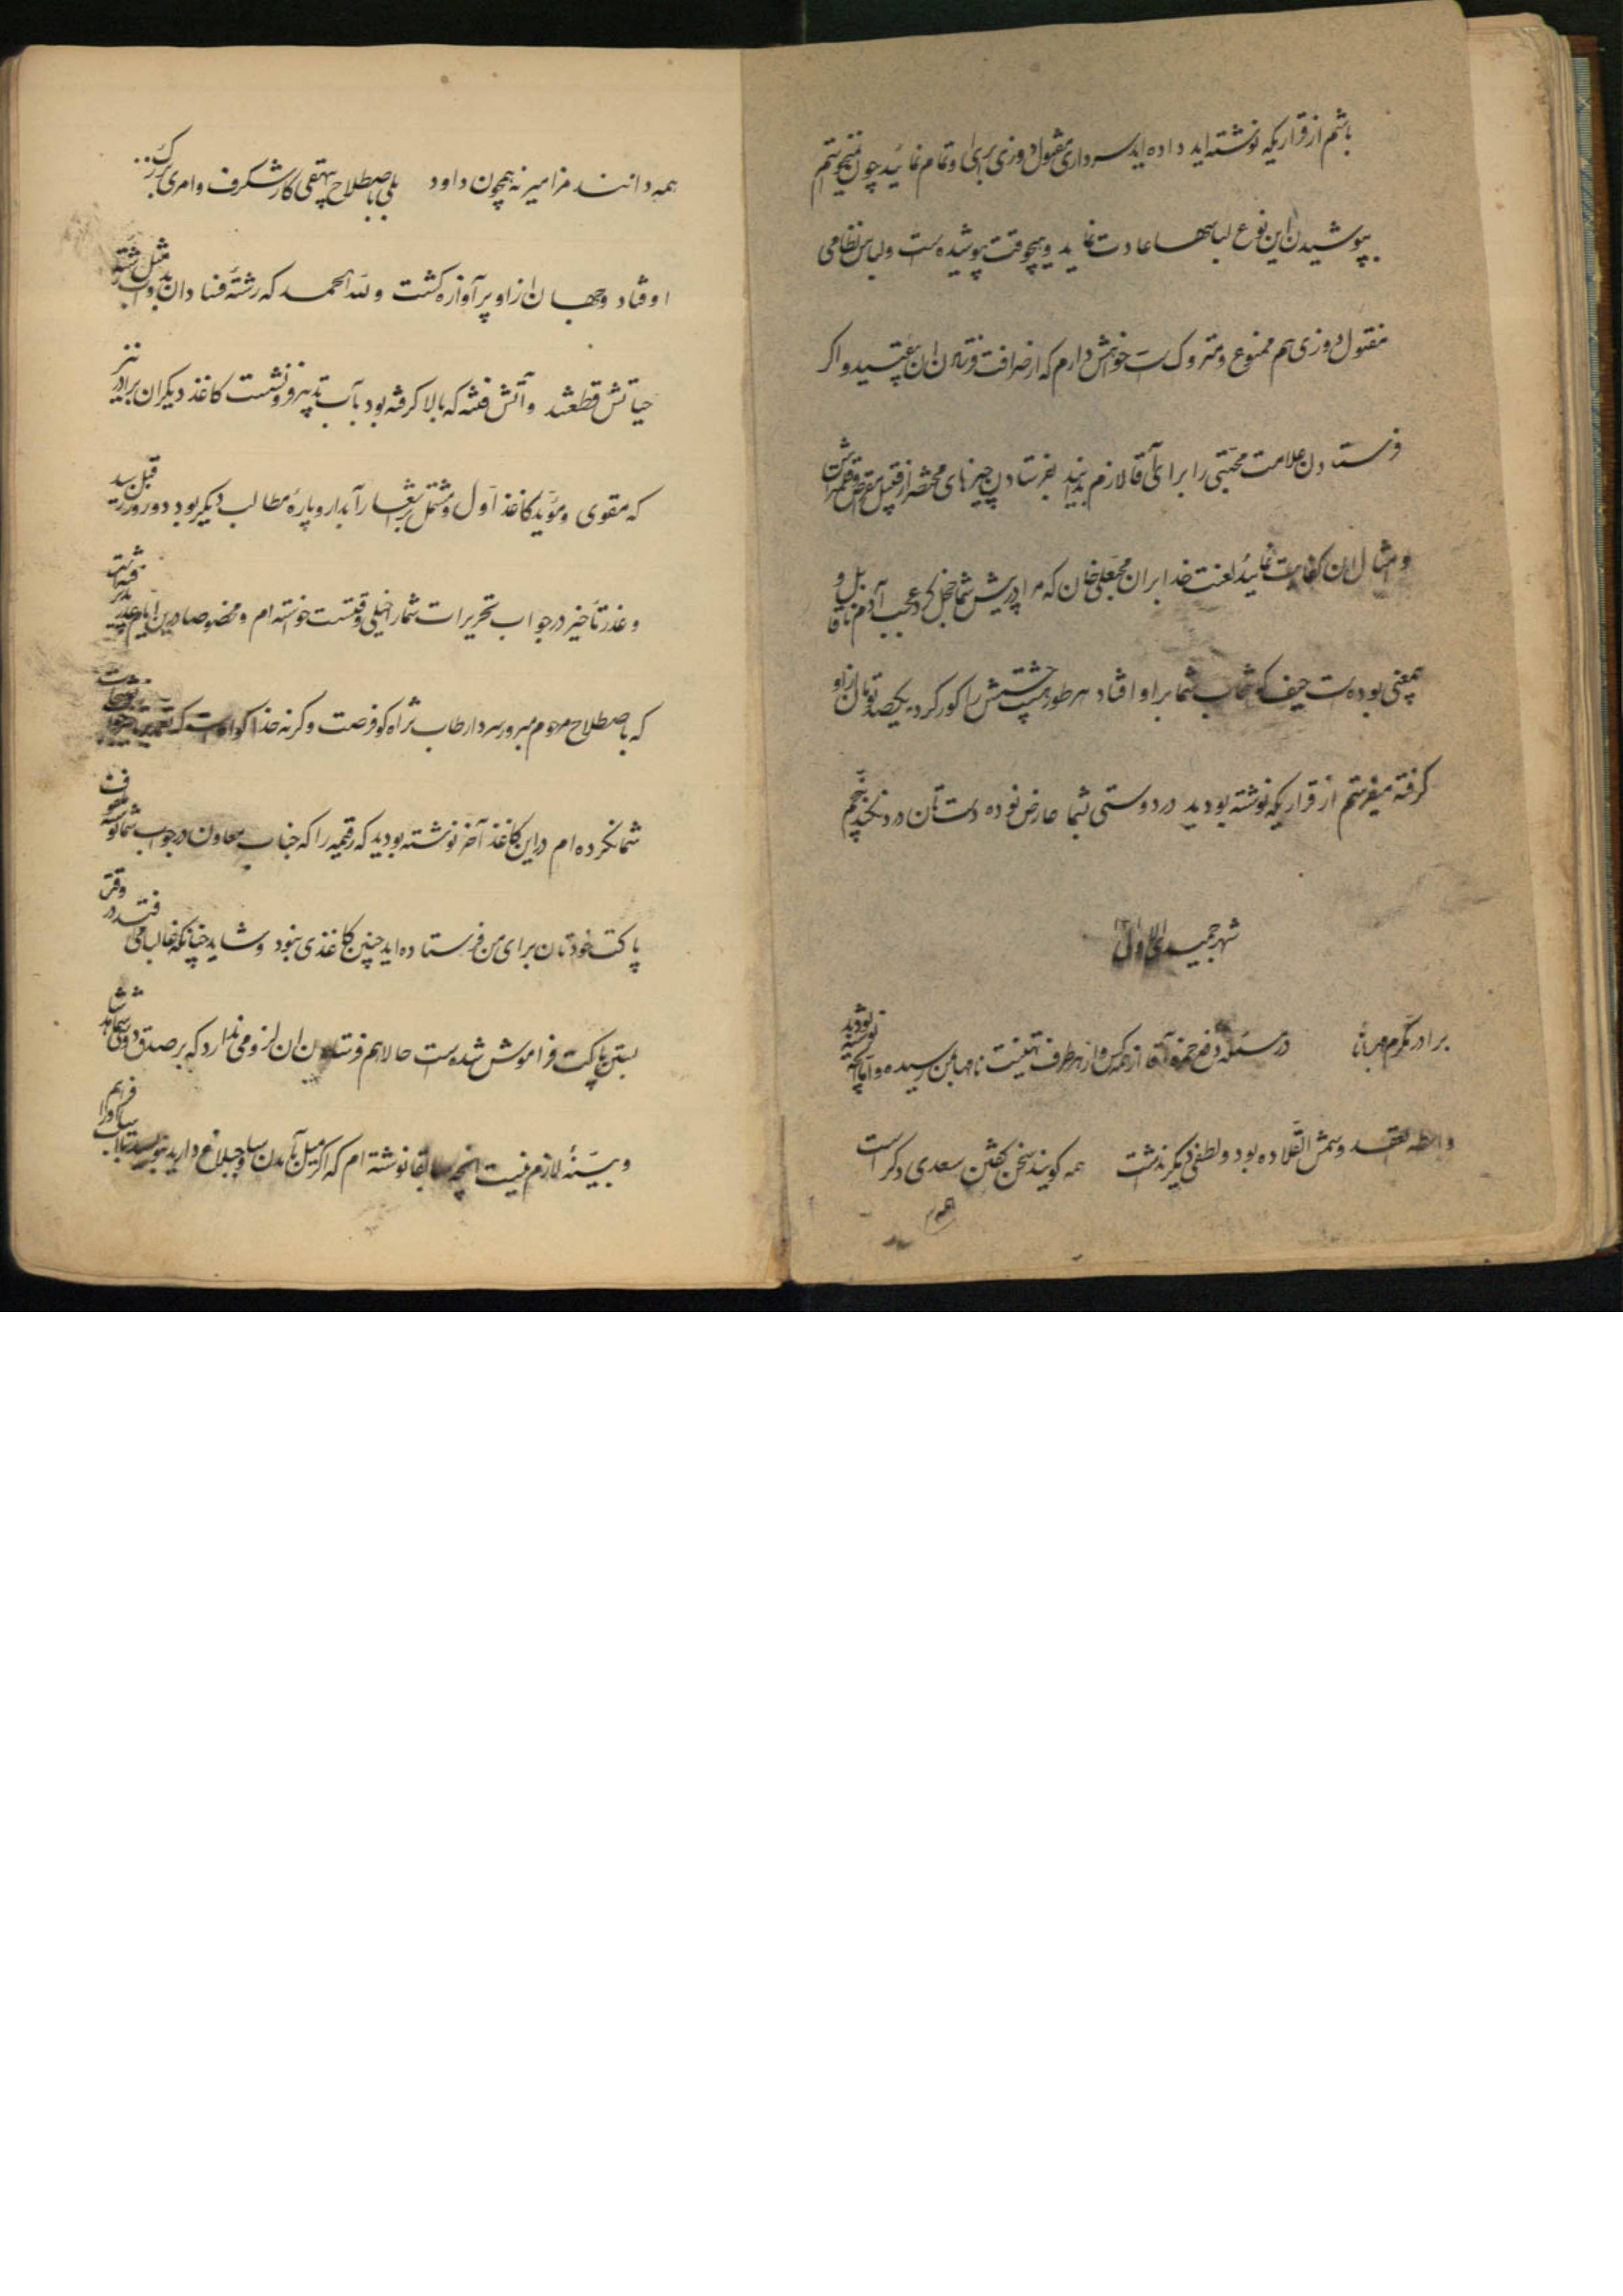 باشم از قراریکه نوشته‌اید داده‌اید سرداری مفتول دوزی برای و تمام نمایند چون نمیخواستم
بپوشیدن این نوع لباسها عادت نماید و هیچوقت نپوشیده است و لباس نظامی
مفتول دوزی هم ممنوع و متروک است خواهش دارم که از صرافت فرستادن ان بیفتید و اگر
فرستادن علامت محبتی را برای آقا لازم بدانید بفرستادن چیزهای مختصر از قبیل مقراض و قلمتراش
و امثال ان کفایت نمائید لعنت خدا بران محبعلی خان که مرا در پیش شما خجل کرد عجب آدم ناقابل و
بیمعنی بوده است حیف که شما براو افتاد هر طور هست چشمش را کور کرده یکصد تومان از او
گرفته میفرستم از قراریکه نوشته بودید در دوستی شما عارض نوده دستان درد نکند پنجم
شهر جمیدی الاول
برادر مکرم مهربانا در مسئله دفع حمزه آقا از همه کس و از هر طرف تهنیت نامها بمن رسیده و اما آنچه نوشته بودید
واسطه العقد و شمس القلاده بود و لطفی دیگر داشت همه گویند سخن گفتن سعدی دگر است
همه
همه دانند مزامیر نه همچون داود بلی باصطلاح بیهقی کار شگرف و امری بزرگ
اوفتاد و جهان از او پر آوازه گشت و لله الحمد که رشته فساد ان بد مثل رشته
حیاتش قطع شد و آتش فتنه که بالا گرفته بود بآب تدبیر فرو نشست کاغذ دیگران برادر نیز
که مقوی و مؤید کاغذ اول و مشتمل بر اشعار آبدار و پاره مطالب دیگر بود دو روز قبل رسید
و عذر تأخیر در جواب تحریرات شما را خیلی وقت است خواسته‌ام و مخصوصا در این ایام
که باصطلاح مرحوم مبرور سردار طاب ثراه کو فرصت و گرنه خدا گواه است که
شما نکرده‌ام در این کاغذ آخر نوشته بودید که رقیمه را که جناب معاون در جواب شما نوشته
پاکت خودتان برای من فرستاده‌اید چنین کاغذی نبود و شاید چنانکه غالبا می افتد در وقت
بستن پاکت فراموش شده است حالا هم فرستادن ان لزومی ندارد که بر صدق دوستی شما شاهد
و بیّنه لازم نیست انچه سابقا نوشته‌ام که اگر میل بآمدن ساوجبلاغ دارید بنویسید تا اسباب انرا فراهم